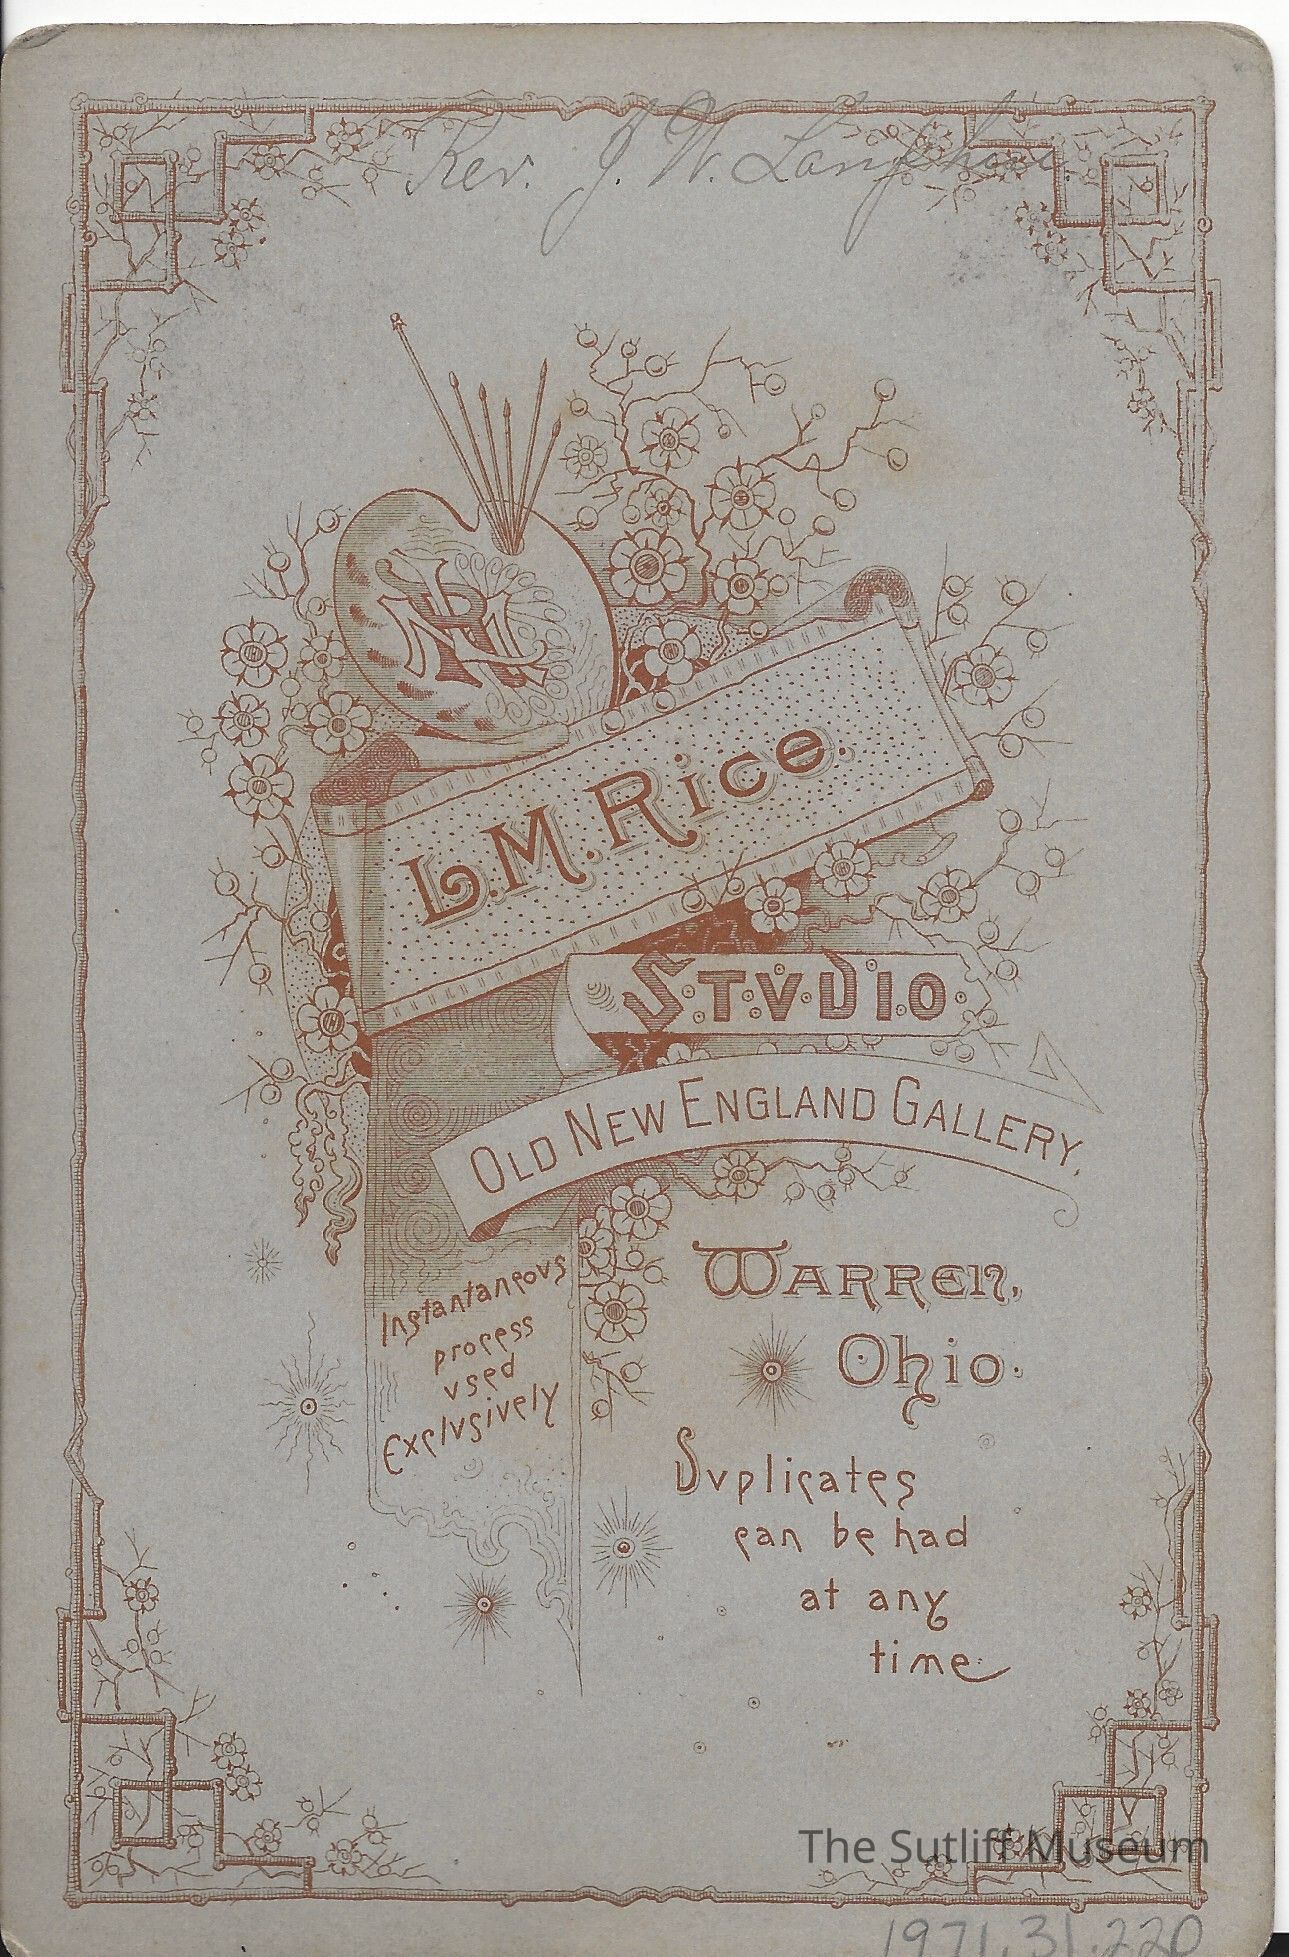 Rev. J. W. Lanphear
LMR
L. M. Rice.
S.T.V.D.I.O.
OLD NEW ENGLAND GALLERY,
WARREN,
Ohio.
Instantaneovs
process
vsed
Exclvsively
Dvplicates
can be had
at any
time.
The Sutliff Museum
1971.31.220